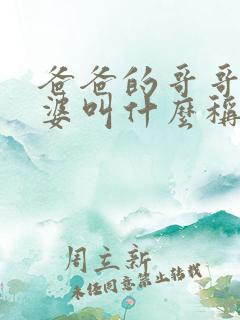 爸爸的哥哥
婆叫什麼稱
周立新
未經同意禁止轉載